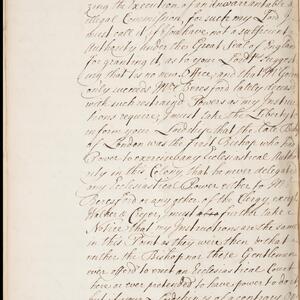 zing the Execution of an Unwarrantable &
illegal Commission, for such my Lord I
must call it if You have not a sufficient
Authority under the Great Seal of England
for granting it, as to your Lordps. suggest
ing that tis no new Office, and that Mr. Gor
only succeeds Mr. Beresford lately deceas
with such restraind Powers as my Instruc
tions require; I must take the Liberty to
inform your Lordship that the late Bishop
of London was the first Bishop who had
Power to exercise any Ecclesiastical Autho
rity in this Colony, that he never delegated
any Ecclesiastical Power either to Mr.
Beresford or any other of the Clergy except
Holder & Cryer, I must also further take
Notice that my Instructions are the same
in this Point as they were then so that
neither the Bishop nor these Gentlemen
ever offerd to erect an Ecclesiastical Court
here or ever pretended to have power to do it